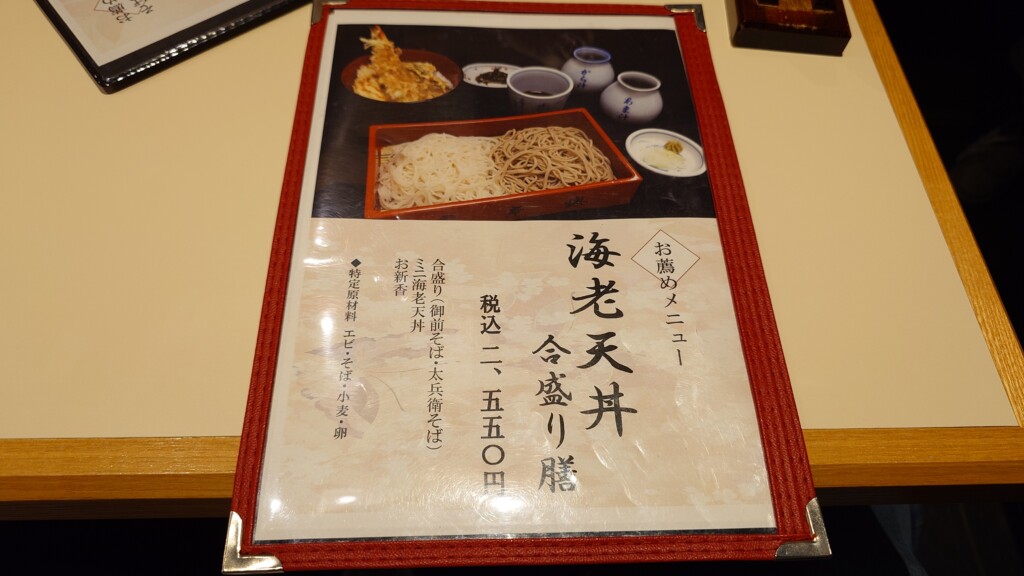 お薦めメニュー
海老天丼
合盛り膳
税込 二、五五〇円
合盛り(御前そば・太兵衛そば)
ミニ海老天丼
お新香
◆特定原材料 エビ・そば・小麦・卵
からつゆ
あまつゆ